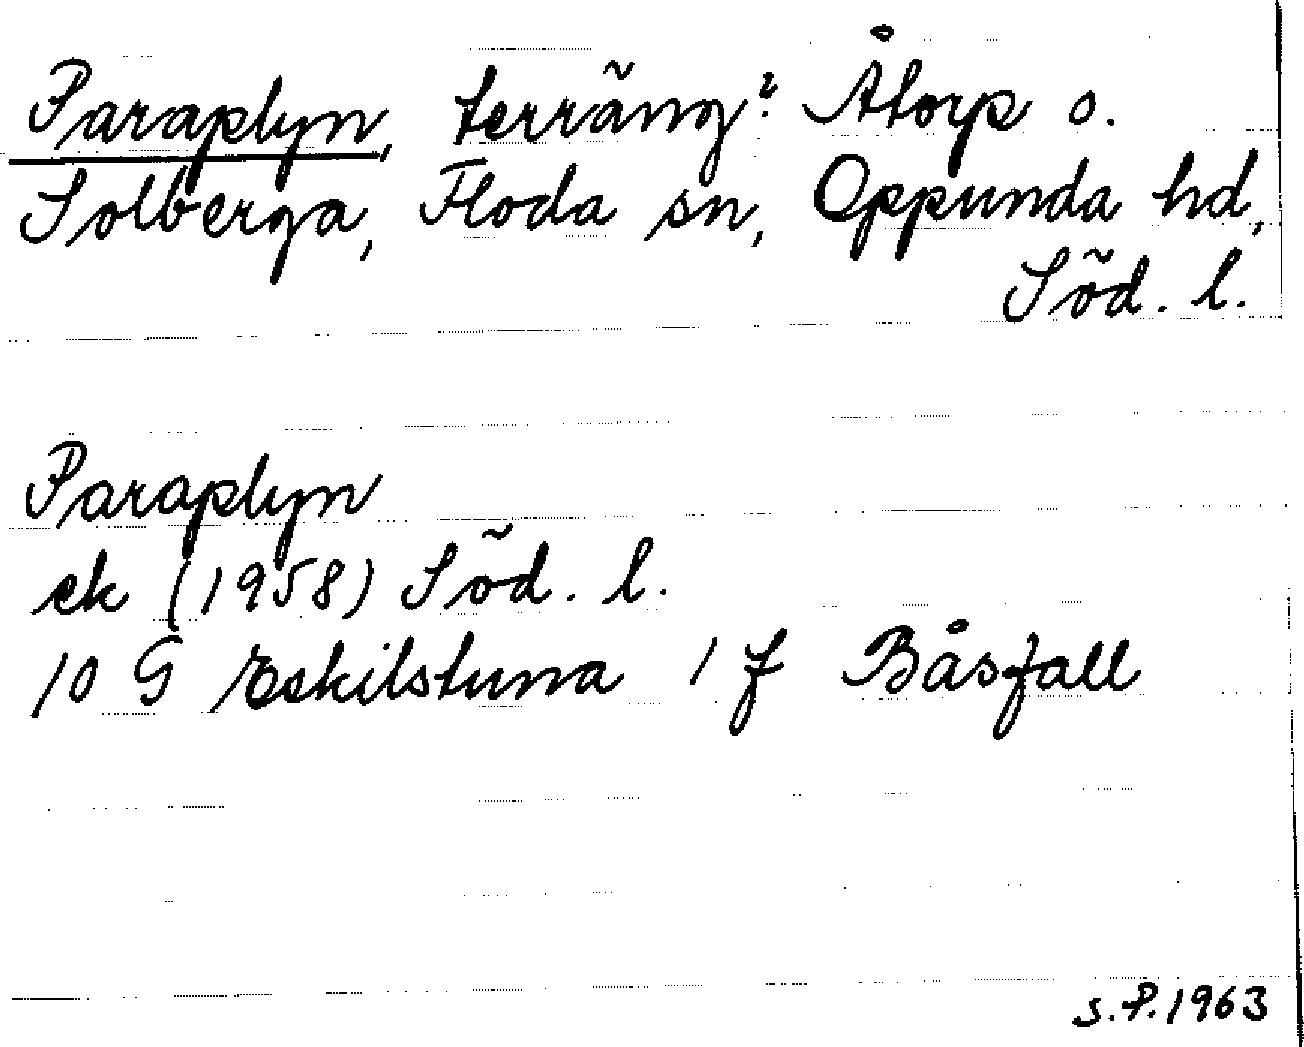 Paraplyn, terräng? Åtorp o.
Solberga, Floda sn, Oppunda hd,
Söd. l.
Paraplyn
ek (1958) Söd. l.
10 G Eskilstuna 1 f Båsfall
S.P. 1963